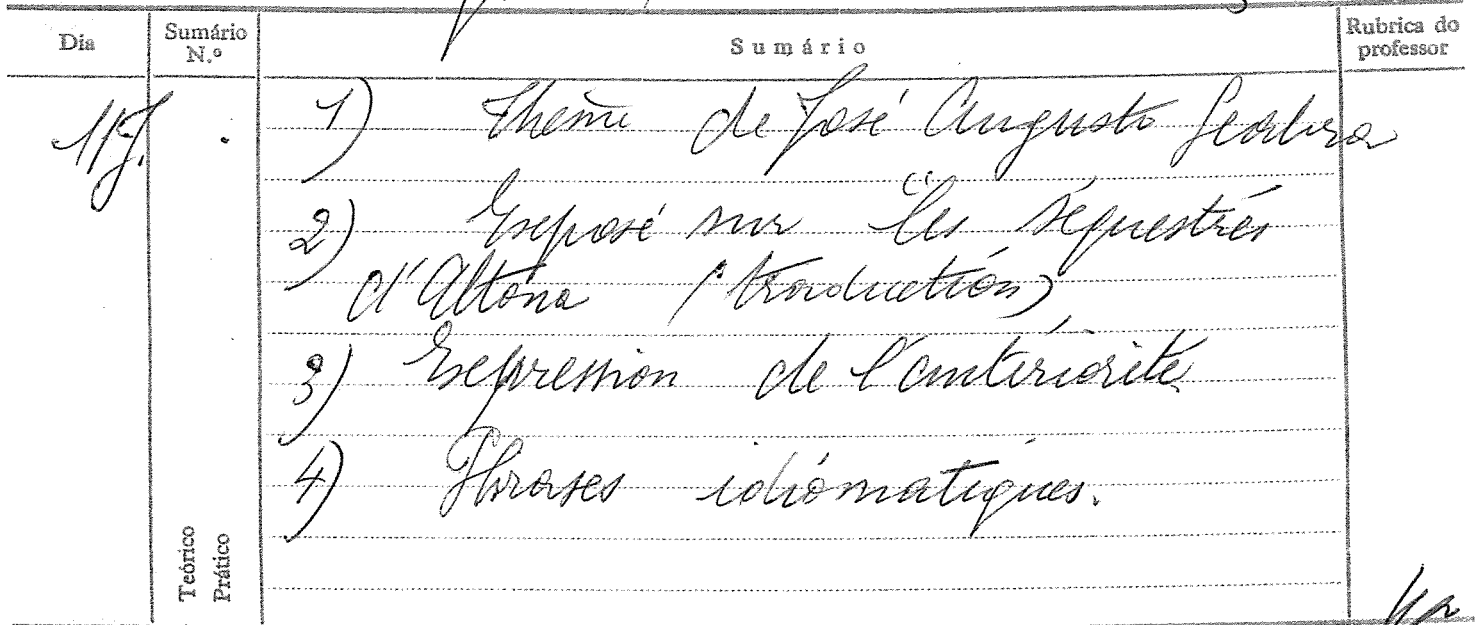 Dia
Sumário
N.º
Sumário
Rubrica do
professor
1) Thème de José Augusto Seabra
2) Exposé sur "les séquestrés
d'Altona (traduction)
3) Expression de l'antériorité
4) Phrases idiomatiques.
Teórico
Prático